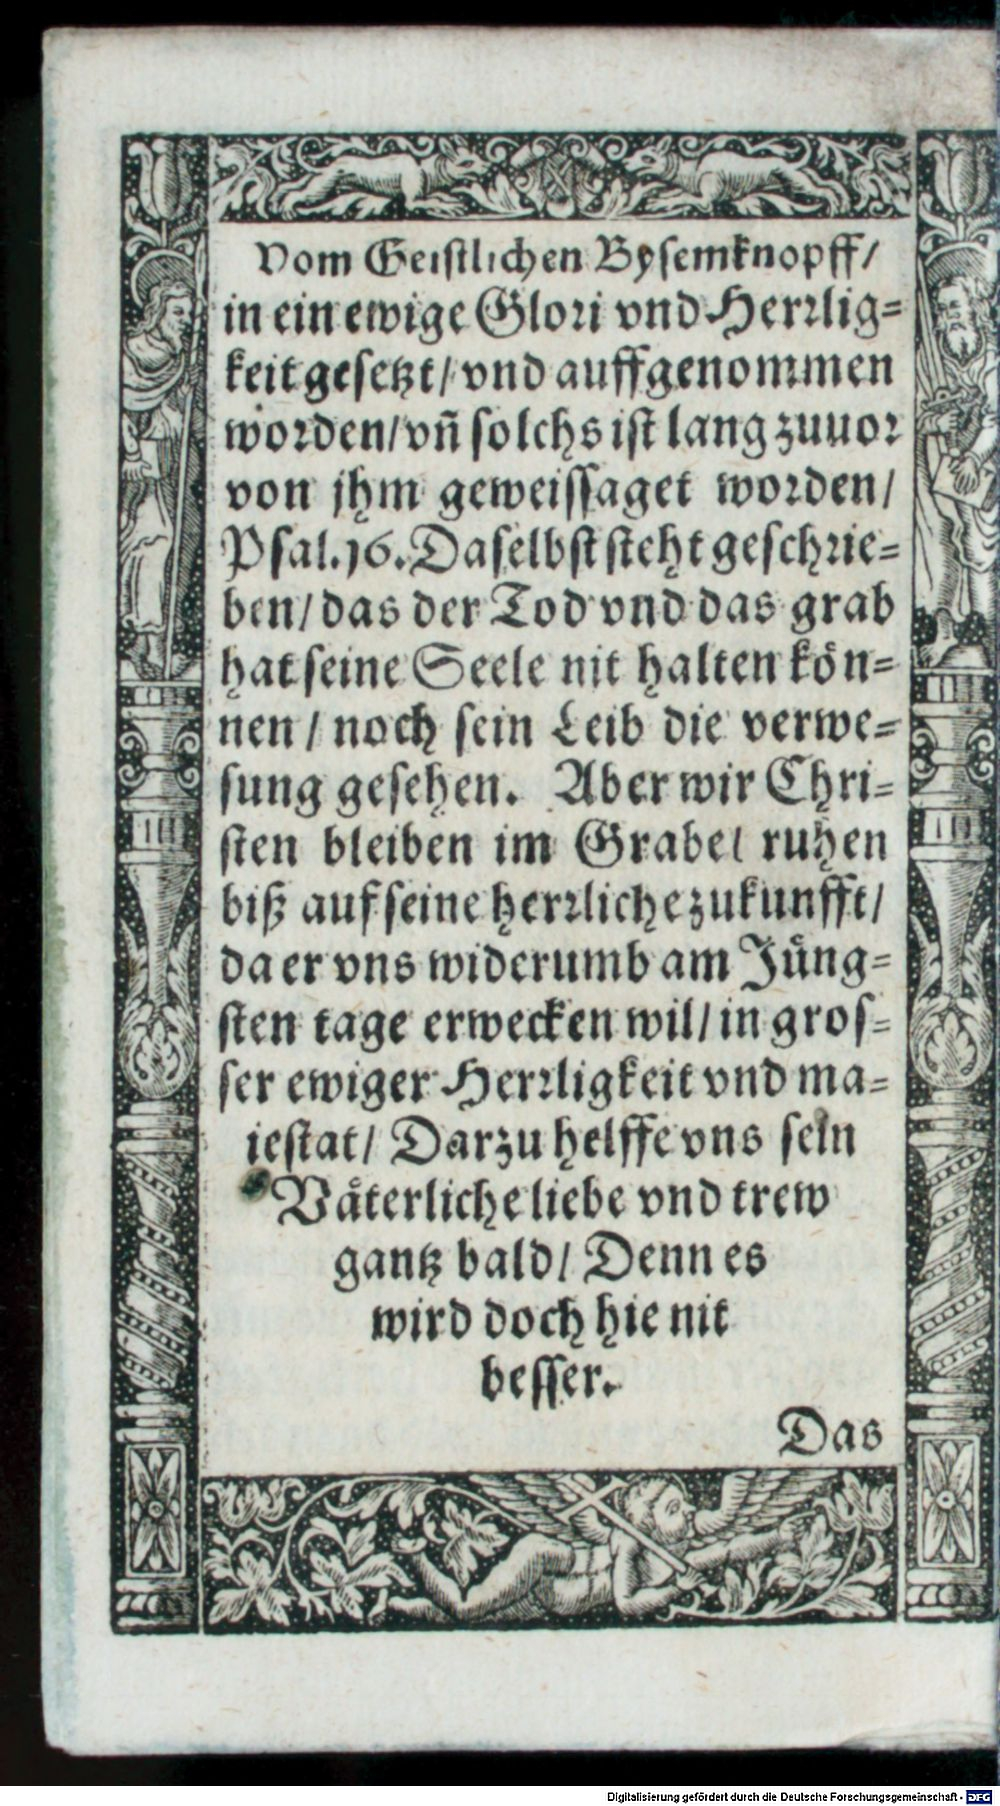 Vom Geistlichen Bysemknopff/
in ein ewige Glori vnd Herrlig=
keit gesetzt/ vnd auffgenommen
worden/ vñ solchs ist lang zuuor
von jhm geweissaget worden/
Psal. 16. Daselbst steht geschrie=
ben/ das der Tod vnd das grab
hat seine Seele nit halten kön=
nen/ noch sein Leib die verwe=
sung gesehen. Aber wir Chri=
sten bleiben im Grabe/ ruhen
biß auf seine herrliche zukunfft/
da er vns widerumb am Jüng=
sten tage erwecken wil/ in gros=
ser ewiger Herrligkeit vnd ma=
iestat/ Darzu helffe vns sein
Väterliche liebe vnd trew
gantz bald/ Denn es
wird doch hie nit
besser.
Das
Digitalisierung gefördert durch die Deutsche Forschungsgemeinschaft - DFG